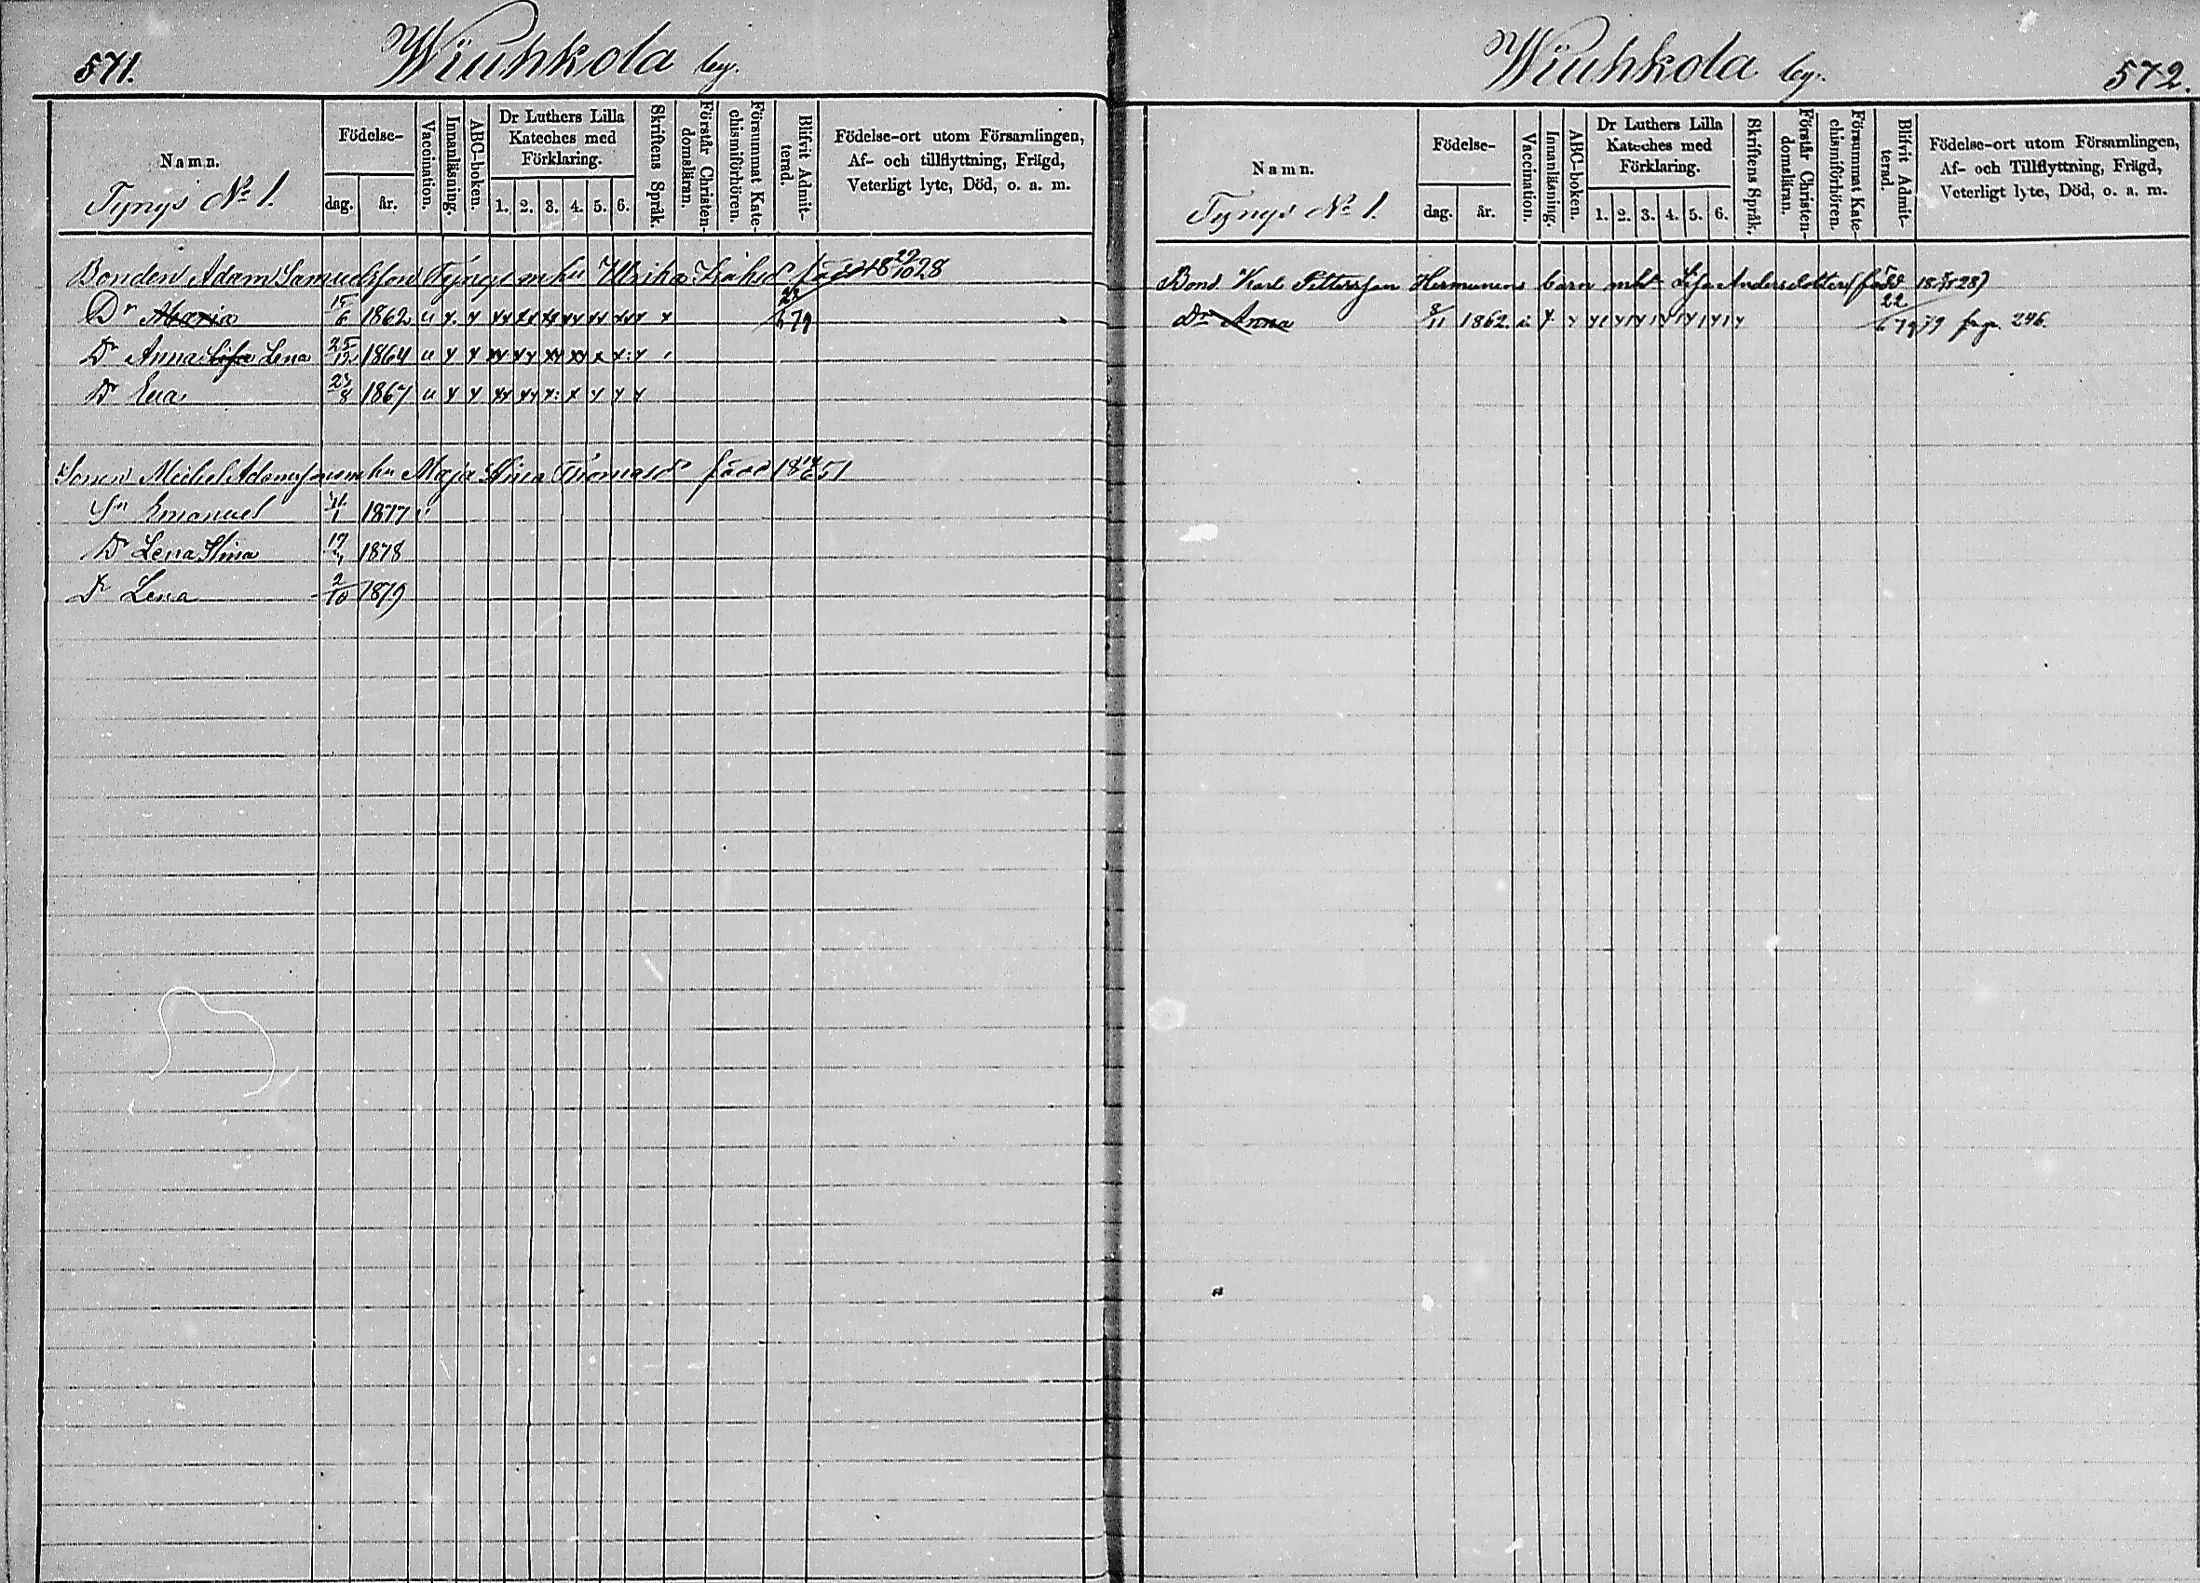 571. Wiuhkola by.
Namn. Födelse- dag. år. Vaccination. Innanläsning. ABC-boken. Dr Luthers Lilla Kateches med Förklaring. 1. 2. 3. 4. 5. 6. Skriftens Språk. Förstår Christendomsläran. Försummat Katechismiförhören. Blifvit Admitterad. Födelse-ort utom Församlingen, Af- och tillflyttning, Frägd, Veterligt lyte, Död, o. a. m.
Tynys No 1.
Bonden Adam Samuelsson Tynys m hu Ulrika född 18 22/10 28
Dr Maria 15/6 1862 u 79
Dr Anna Lisa Lena 25/12 1864 u
Dr Eva 1867 u
Sonen Michel Adamsson m hu Maja Stina Thomasdr född 18 51
Sn Emanuel 1877
Dr Lena Stina 1878
Dr Lena 2/10 1879
Wiuhkola by. 572.
Namn. Födelse- dag. år. Vaccination. Innanläsning. ABC-boken. Dr Luthers Lilla Kateches med Förklaring. 1. 2. 3. 4. 5. 6. Skriftens Språk. Förstår Christendomsläran. Försummat Katechismiförhören. Blifvit Admitterad. Födelse-ort utom Församlingen, Af- och Tillflyttning, Frägd, Veterligt lyte, Död, o. a. m.
Tynys No 1.
Bond Karl Pettersson Hermunens barn Lisa Andersdotter (född 28)
Dr Anna 1862. 22/6 79 79 pag. 246.